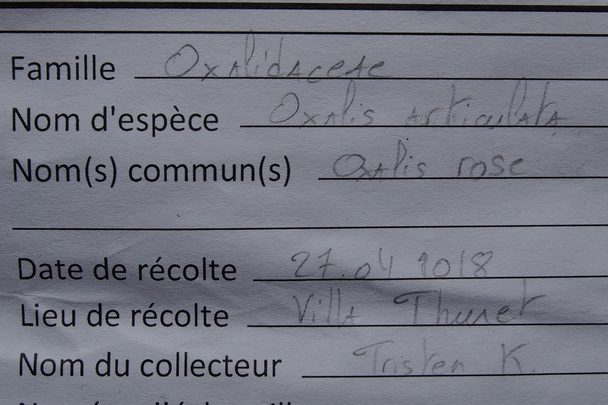 Famille Oxalidaceae
Nom d'espèce Oxalis articulata
Nom(s) commun(s) Oxalis rose
Date de récolte 27.04 1018
Lieu de récolte Villa Thuret
Nom du collecteur Tristen K.